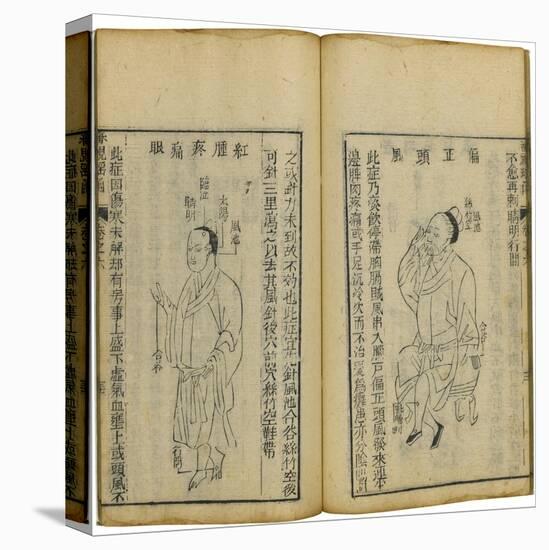 不愈再刺睛明行間
偏正頭風
風池
絲竹空
合谷
此症乃痰飲停滯胸膈賊風串入腦戶偏正頭風發來連半
邊脾肉疼痛或手足沉冷久而不治變為癱患亦分陰陽
之或針力未到故不効也此症宜針風池合谷絲竹空後
可針三里瀉之以去其風針後穴前穴絲竹空鞋帶
紅腫疼痛眼
風池
太陽
臨泣
睛明
合谷
行間
此症因傷寒未解却有房事上盛下虛氣血壅上或頭風不
審視瑤函 卷之六